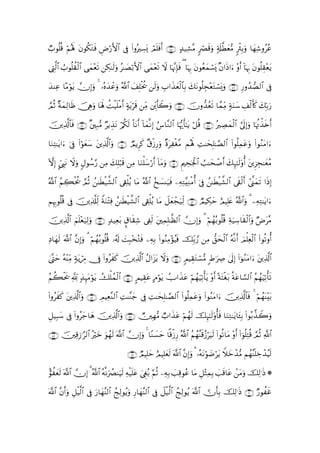 عُرُوشِهَا وَبِئْرٍ مُّعَطَّلَةٍ وَقَصْرٍ مَّشِيدٍ ﴿٤٥﴾ أَفَلَمْ يَسِيرُوا۟ فِى ٱلْأَرْضِ فَتَكُونَ لَهُمْ قُلُوبٌ
يَعْقِلُونَ بِهَآ أَوْ ءَاذَانٌ يَسْمَعُونَ بِهَا ۖ فَإِنَّهَا لَا تَعْمَى ٱلْأَبْصَٰرُ وَلَٰكِن تَعْمَى ٱلْقُلُوبُ ٱلَّتِى
فِى ٱلصُّدُورِ ﴿٤٦﴾ وَيَسْتَعْجِلُونَكَ بِٱلْعَذَابِ وَلَن يُخْلِفَ ٱللَّهُ وَعْدَهُۥ ۚ وَإِنَّ يَوْمًا عِندَ
رَبِّكَ كَأَلْفِ سَنَةٍ مِّمَّا تَعُدُّونَ ﴿٤٧﴾ وَكَأَيِّن مِّن قَرْيَةٍ أَمْلَيْتُ لَهَا وَهِىَ ظَالِمَةٌ ثُمَّ
أَخَذْتُهَا وَإِلَىَّ ٱلْمَصِيرُ ﴿٤٨﴾ قُلْ يَٰٓأَيُّهَا ٱلنَّاسُ إِنَّمَآ أَنَا۠ لَكُمْ نَذِيرٌ مُّبِينٌ ﴿٤٩﴾ فَٱلَّذِينَ
ءَامَنُوا۟ وَعَمِلُوا۟ ٱلصَّٰلِحَٰتِ لَهُم مَّغْفِرَةٌ وَرِزْقٌ كَرِيمٌ ﴿٥٠﴾ وَٱلَّذِينَ سَعَوْا۟ فِىٓ ءَايَٰتِنَا
مُعَٰجِزِينَ أُو۟لَٰٓئِكَ أَصْحَٰبُ ٱلْجَحِيمِ ﴿٥١﴾ وَمَآ أَرْسَلْنَا مِن قَبْلِكَ مِن رَّسُولٍ وَلَا نَبِىٍّ إِلَّآ
إِذَا تَمَنَّىٰٓ أَلْقَى ٱلشَّيْطَٰنُ فِىٓ أُمْنِيَّتِهِۦ فَيَنسَخُ ٱللَّهُ مَا يُلْقِى ٱلشَّيْطَٰنُ ثُمَّ يُحْكِمُ ٱللَّهُ
ءَايَٰتِهِۦ ۗ وَٱللَّهُ عَلِيمٌ حَكِيمٌ ﴿٥٢﴾ لِّيَجْعَلَ مَا يُلْقِى ٱلشَّيْطَٰنُ فِتْنَةً لِّلَّذِينَ فِى قُلُوبِهِم
مَّرَضٌ وَٱلْقَاسِيَةِ قُلُوبُهُمْ ۗ وَإِنَّ ٱلظَّٰلِمِينَ لَفِى شِقَاقٍۭ بَعِيدٍ ﴿٥٣﴾ وَلِيَعْلَمَ ٱلَّذِينَ
أُوتُوا۟ ٱلْعِلْمَ أَنَّهُ ٱلْحَقُّ مِن رَّبِّكَ فَيُؤْمِنُوا۟ بِهِۦ فَتُخْبِتَ لَهُۥ قُلُوبُهُمْ ۗ وَإِنَّ ٱللَّهَ لَهَادِ
ٱلَّذِينَ ءَامَنُوٓا۟ إِلَىٰ صِرَٰطٍ مُّسْتَقِيمٍ ﴿٥٤﴾ وَلَا يَزَالُ ٱلَّذِينَ كَفَرُوا۟ فِى مِرْيَةٍ مِّنْهُ حَتَّىٰ
تَأْتِيَهُمُ ٱلسَّاعَةُ بَغْتَةً أَوْ يَأْتِيَهُمْ عَذَابُ يَوْمٍ عَقِيمٍ ﴿٥٥﴾ ٱلْمُلْكُ يَوْمَئِذٍ لِّلَّهِ يَحْكُمُ
بَيْنَهُمْ ۚ فَٱلَّذِينَ ءَامَنُوا۟ وَعَمِلُوا۟ ٱلصَّٰلِحَٰتِ فِى جَنَّٰتِ ٱلنَّعِيمِ ﴿٥٦﴾ وَٱلَّذِينَ كَفَرُوا۟
وَكَذَّبُوا۟ بِـَٔايَٰتِنَا فَأُو۟لَٰٓئِكَ لَهُمْ عَذَابٌ مُّهِينٌ ﴿٥٧﴾ وَٱلَّذِينَ هَاجَرُوا۟ فِى سَبِيلِ
ٱللَّهِ ثُمَّ قُتِلُوٓا۟ أَوْ مَاتُوا۟ لَيَرْزُقَنَّهُمُ ٱللَّهُ رِزْقًا حَسَنًا ۚ وَإِنَّ ٱللَّهَ لَهُوَ خَيْرُ ٱلرَّٰزِقِينَ ﴿٥٨﴾
لَيُدْخِلَنَّهُم مُّدْخَلًا يَرْضَوْنَهُۥ ۗ وَإِنَّ ٱللَّهَ لَعَلِيمٌ حَلِيمٌ ﴿٥٩﴾
۞ ذَٰلِكَ وَمَنْ عَاقَبَ بِمِثْلِ مَا عُوقِبَ بِهِۦ ثُمَّ بُغِىَ عَلَيْهِ لَيَنصُرَنَّهُ ٱللَّهُ ۗ إِنَّ ٱللَّهَ لَعَفُوٌّ
غَفُورٌ ﴿٦٠﴾ ذَٰلِكَ بِأَنَّ ٱللَّهَ يُولِجُ ٱلَّيْلَ فِى ٱلنَّهَارِ وَيُولِجُ ٱلنَّهَارَ فِى ٱلَّيْلِ وَأَنَّ ٱللَّهَ